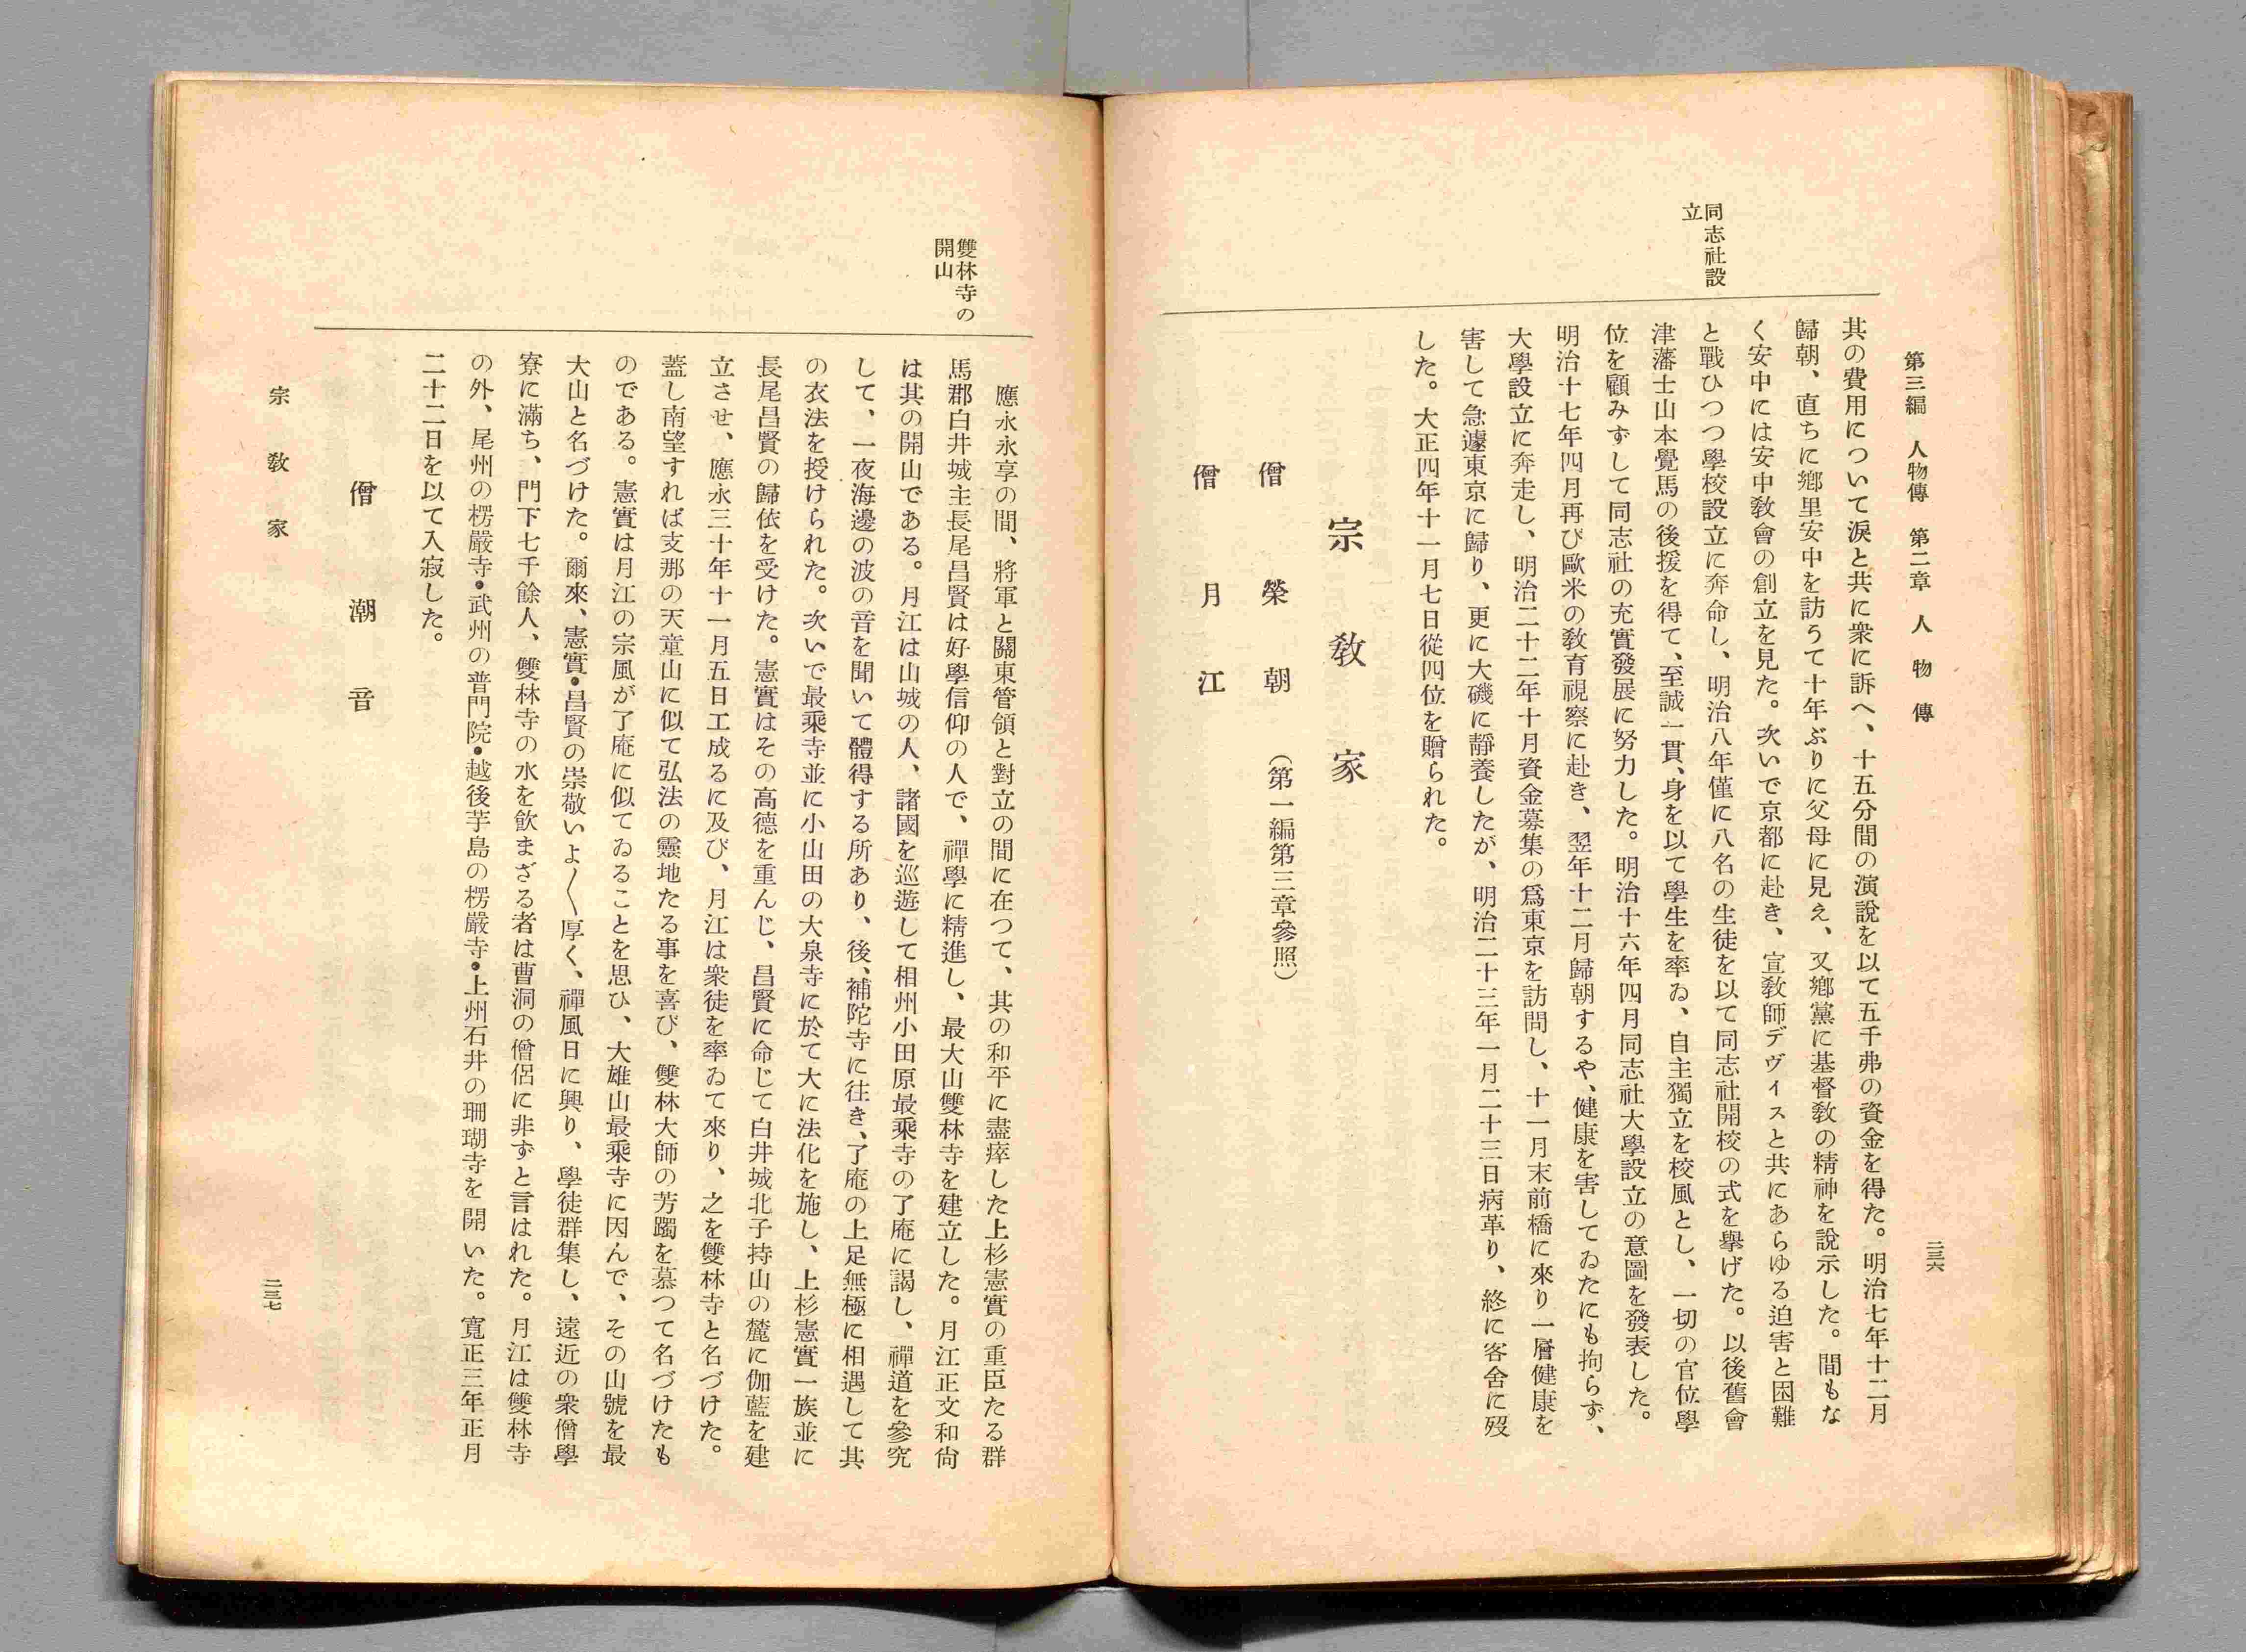 第三編　人物傳　第二章　人物傳
二三六
同志社設
立
其の費用について涙と共に衆に訴へ、十五分間の演說を以て五千弗の資金を得た。明治七年十二月
歸朝、直ちに鄕里安中を訪うて十年ぶりに父母に見え、又鄕黨に基督敎の精神を說示した。間もな
く安中には安中敎會の創立を見た。次いで京都に赴き、宣敎師デヴィスと共にあらゆる迫害と困難
と戰ひつつ學校設立に奔命し、明治八年僅に八名の生徒を以て同志社開校の式を擧げた。以後舊會
津藩士山本覺馬の後援を得て、至誠一貫、身を以て學生を率ゐ、自主獨立を校風とし、一切の官位學
位を顧みずして同志社の充實發展に努力した。明治十六年四月同志社大學設立の意圖を發表した。
明治十七年四月再び歐米の敎育視察に赴き、翌年十二月歸朝するや、健康を害してゐたにも拘らず、
大學設立に奔走し、明治二十二年十月資金募集の爲東京を訪問し、十一月末前橋に來り一層健康を
害して急遽東京に歸り、更に大磯に靜養したが、明治二十三年一月二十三日病革り、終に客舍に歿
した。大正四年十一月七日從四位を贈られた。
宗敎家
僧榮朝　（第一編第三章參照）
僧月江
雙林寺の
開山
應永永享の間、將軍と關東管領と對立の間に在つて、其の和平に盡瘁した上杉憲實の重臣たる群
馬郡白井城主長尾昌賢は好學信仰の人で、禪學に精進し、最大山雙林寺を建立した。月江正文和尙
は其の開山である。月江は山城の人、諸國を巡遊して相州小田原最乘寺の了庵に謁し、禪道を參究
して、一夜海邊の波の音を聞いて體得する所あり、後、補陀寺に往き、了庵の上足無極に相遇して其
の衣法を授けられた。次いで最乘寺並に小山田の大泉寺に於て大に法化を施し、上杉憲實一族並に
長尾昌賢の歸依を受けた。憲實はその高德を重んじ、昌賢に命じて白井城北子持山の麓に伽藍を建
立させ、應永三十年十一月五日工成るに及び、月江は衆徒を率ゐて來り、之を雙林寺と名づけた。
蓋し南望すれば支那の天童山に似て弘法の靈地たる事を喜び、雙林大師の芳躅を慕つて名づけたも
のである。憲實は月江の宗風が了庵に似てゐることを思ひ、大雄山最乘寺に因んで、その山號を最
大山と名づけた。爾來、憲實・昌賢の崇敬いよ〱厚く、禪風日に興り、學徒群集し、遠近の衆僧學
寮に滿ち、門下七千餘人、雙林寺の水を飮まざる者は曹洞の僧侶に非ずと言はれた。月江は雙林寺
の外、尾州の楞嚴寺・武州の普門院・越後芋島の楞嚴寺・上州石井の珊瑚寺を開いた。寬正三年正月
二十二日を以て入寂した。
僧潮音
宗敎家
二三七